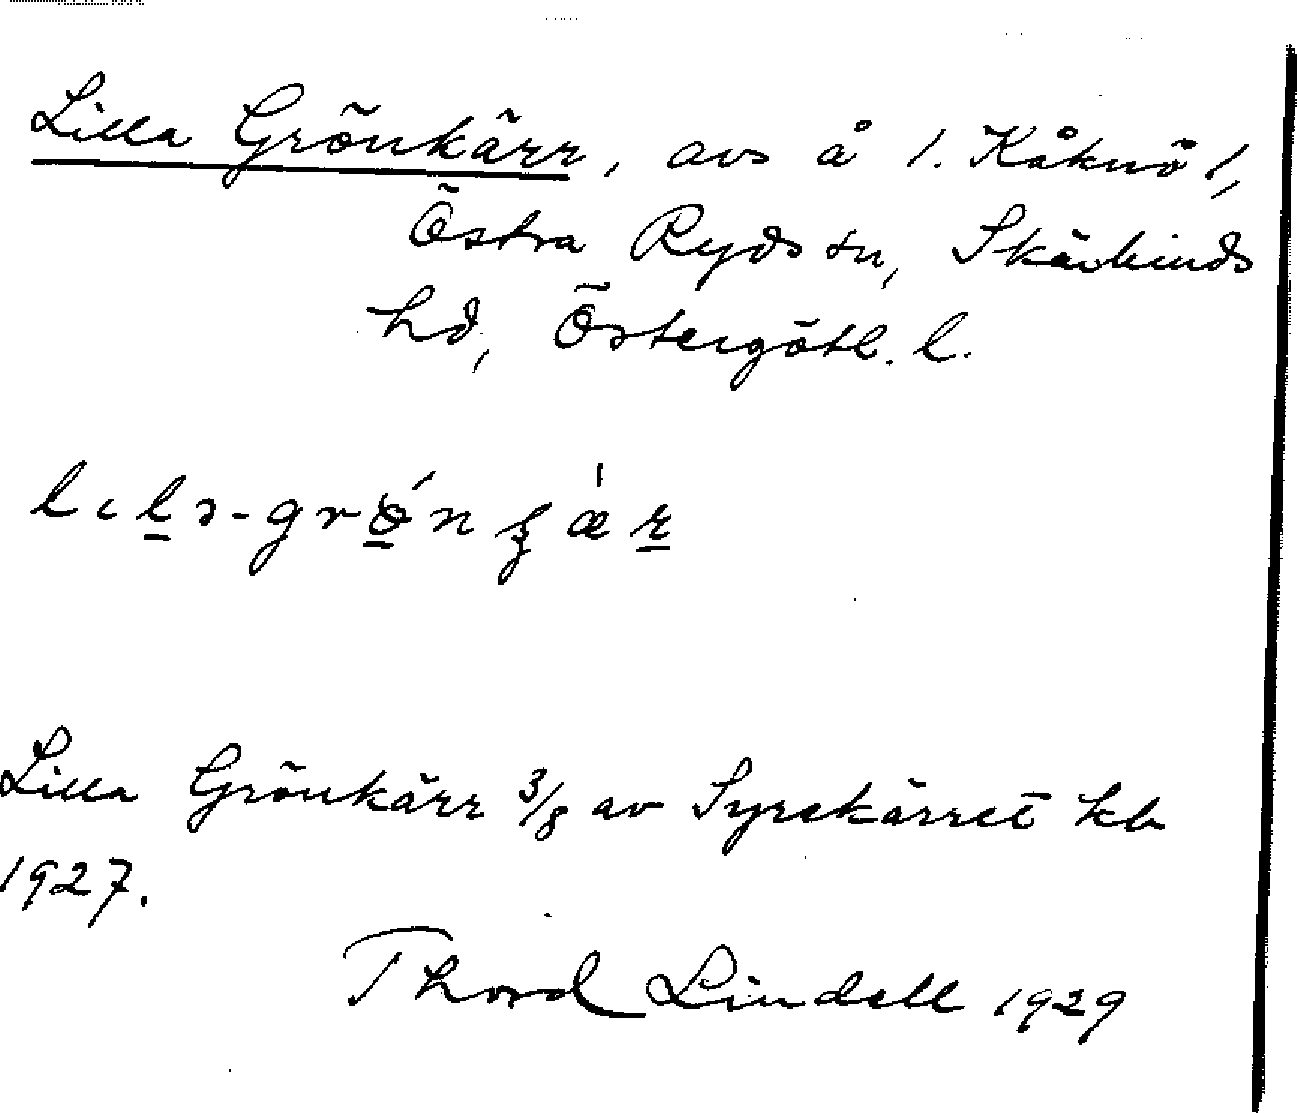 Lilla Grönkärr, avs å 1. Kåknö 1,
Östra Ryds sn, Skärkinds
hd, Östergötl. l.
lılə-grǿn
Lilla Grönkärr 3/8 av Syrekärret kb
1927.
Thord Lindell 1929